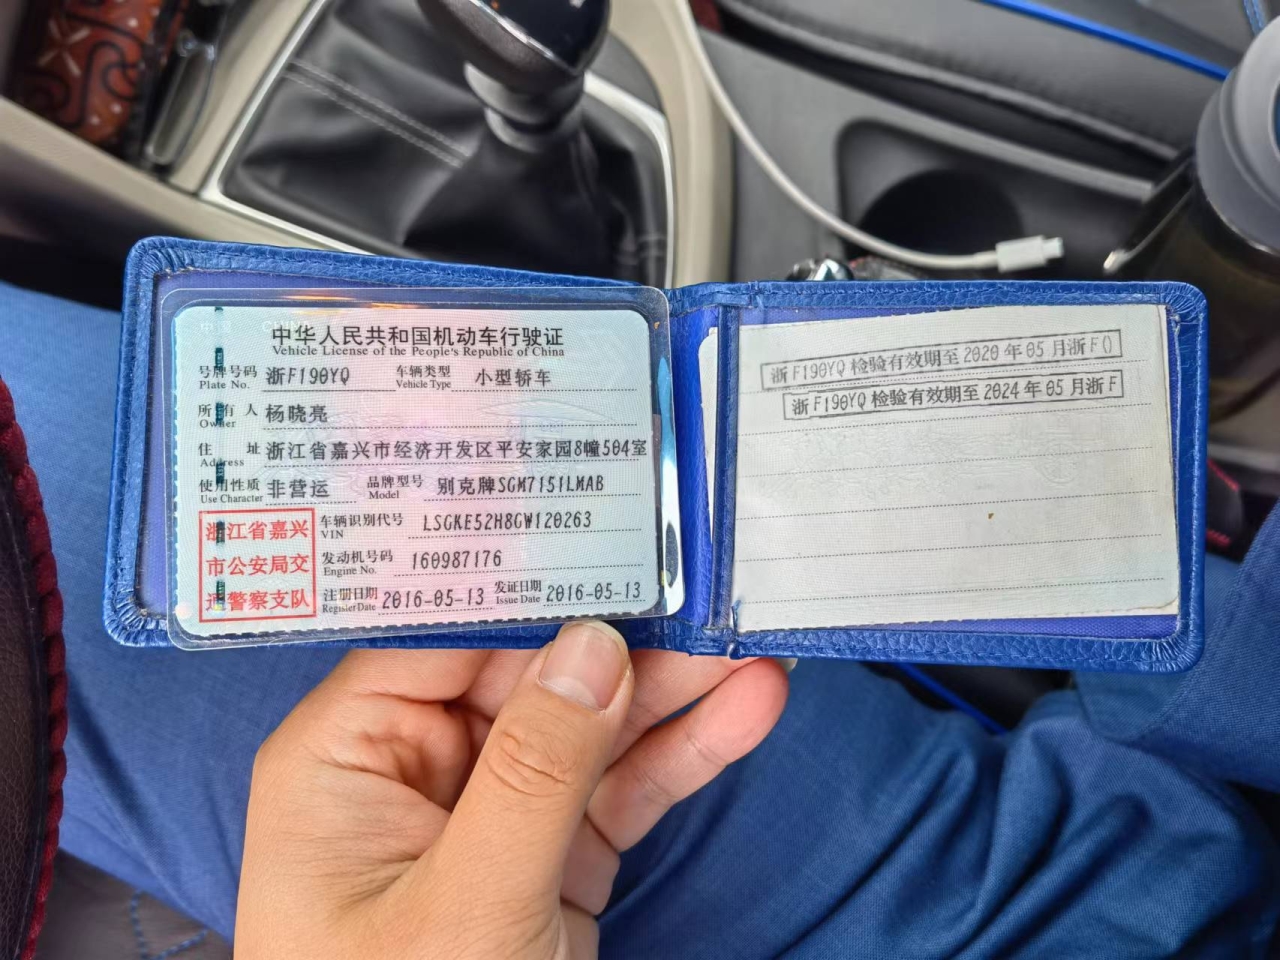 中华人民共和国机动车行驶证
Vehicle License of the People's Republic of China
号牌号码 浙F190YQ 车辆类型 小型轿车
Plate No. Vehicle Type
所有人 杨晓亮
Owner
住址 浙江省嘉兴市经济开发区平安家园8幢504室
Address
使用性质 非营运 品牌型号 别克牌SGM7151LMAB
Use Character Model
浙江省嘉兴
市公安局交
通警察支队
车辆识别代号 LSGKE52H8GW120263
VIN
发动机号码 160987176
Engine No.
注册日期 2016-05-13 发证日期 2016-05-13
Register Date Issue Date
浙F190YQ检验有效期至2020年05月浙F()
浙F190YQ检验有效期至2024年05月浙F